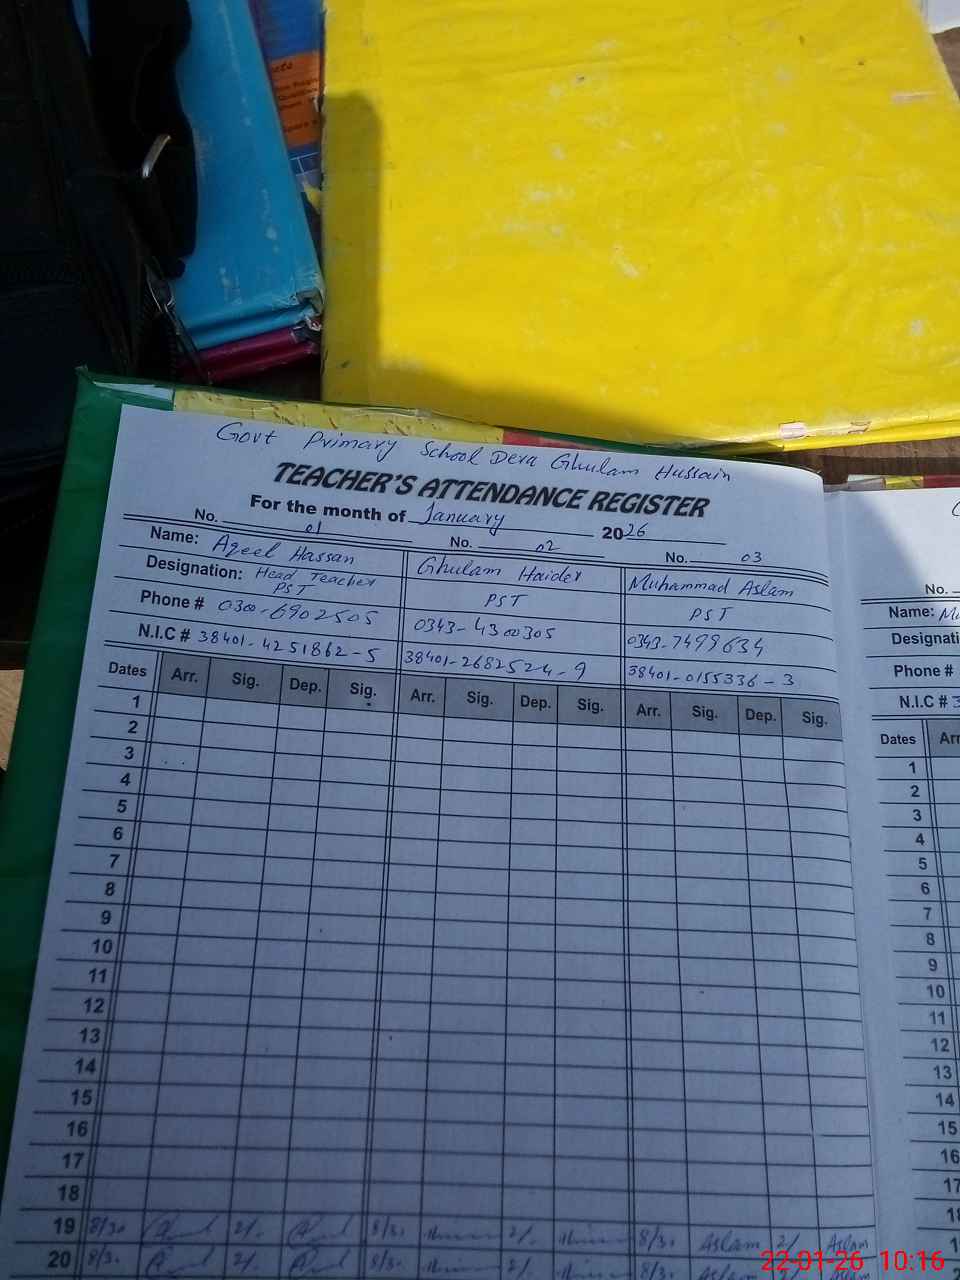 Govt Primary School Dera Ghulam Hussain
TEACHER'S ATTENDANCE REGISTER
For the month of January 2026
No. 01 No. 02 No. 03
Name: Aqeel Hassan Ghulam Haider Muhammad Aslam
Designation: Head Teacher PST PST PST
Phone # 0300-6902505 0343-4300305 0343-7499634
N.I.C # 38401-4251862-5 38401-2682524-9 38401-0155336-3
Dates Arr. Sig. Dep. Sig. Arr. Sig. Dep. Sig. Arr. Sig. Dep. Sig.
1
2
3
4
5
6
7
8
9
10
11
12
13
14
15
16
17
18
19 8/30 2/. 8/3. 2/. 8/3. Aslam 2/. Aslam
20 8/3. 2/. 8/3. 2/. 8/3. Aslam 2/. Aslam
No.
Name:
Designati
Phone #
N.I.C # 3
Dates Arr
1
2
3
4
5
6
7
8
9
10
11
12
13
14
15
16
17
18
22-01-26 10:16